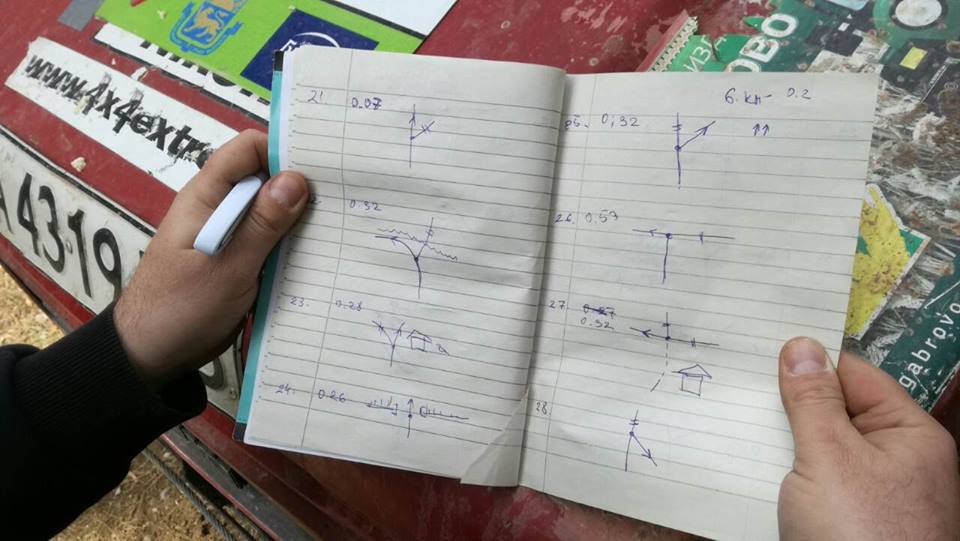 www.4x4extre
A 43·19
ИЗВ
ОВО
gabrovo
21. 0.07
0.32
23. 0.28
24. 0.26
6. кп- 0.2
25. 0,32
26. 0.53
27. 0.27
0.32
28.